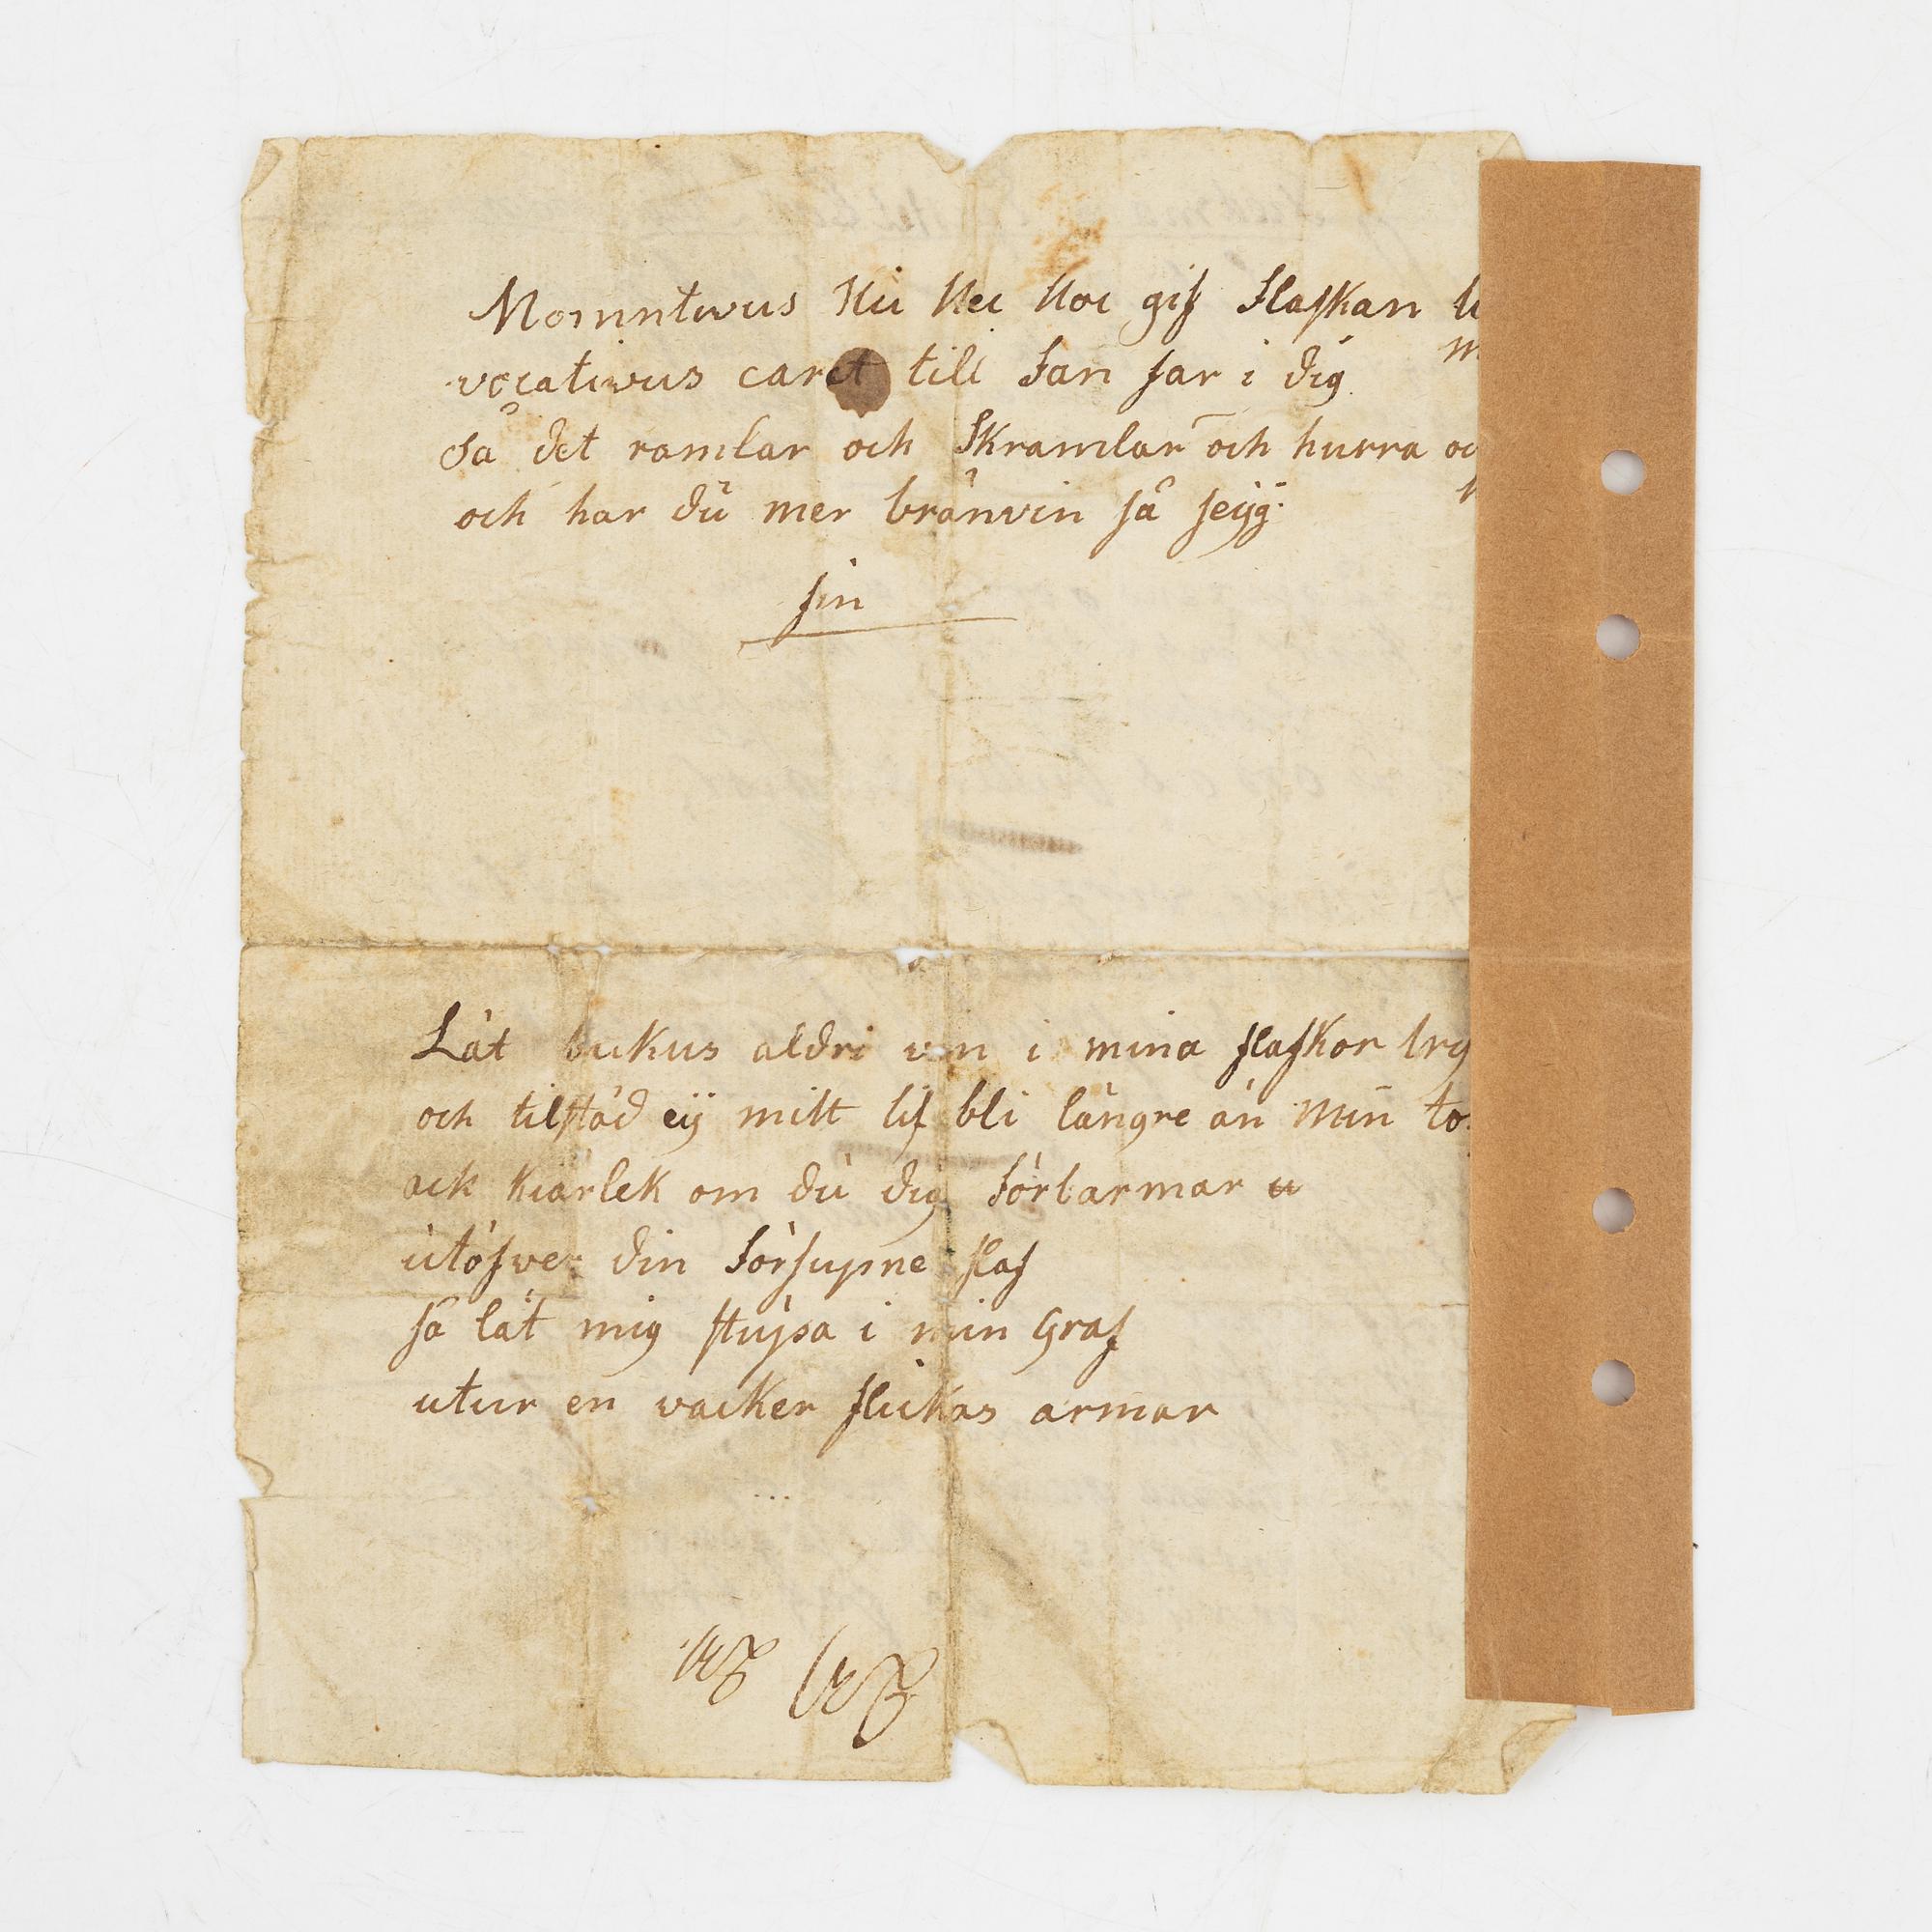 Momntivus Hic Hec Hoc gif flaskan
vocativus caret till fan far i dig
Så det ramlar och Skramlar och hurra
och har du mer bränvin så seyg.
fin
Låt bukus aldri vin i mina flaskor
och tilståd eij mitt lif bli längre än min
ack kiärlek om du dig förbarmar
utöfver din försupne slaf
så lät mig stupsa i min Graf
utur en vacker flickas armar